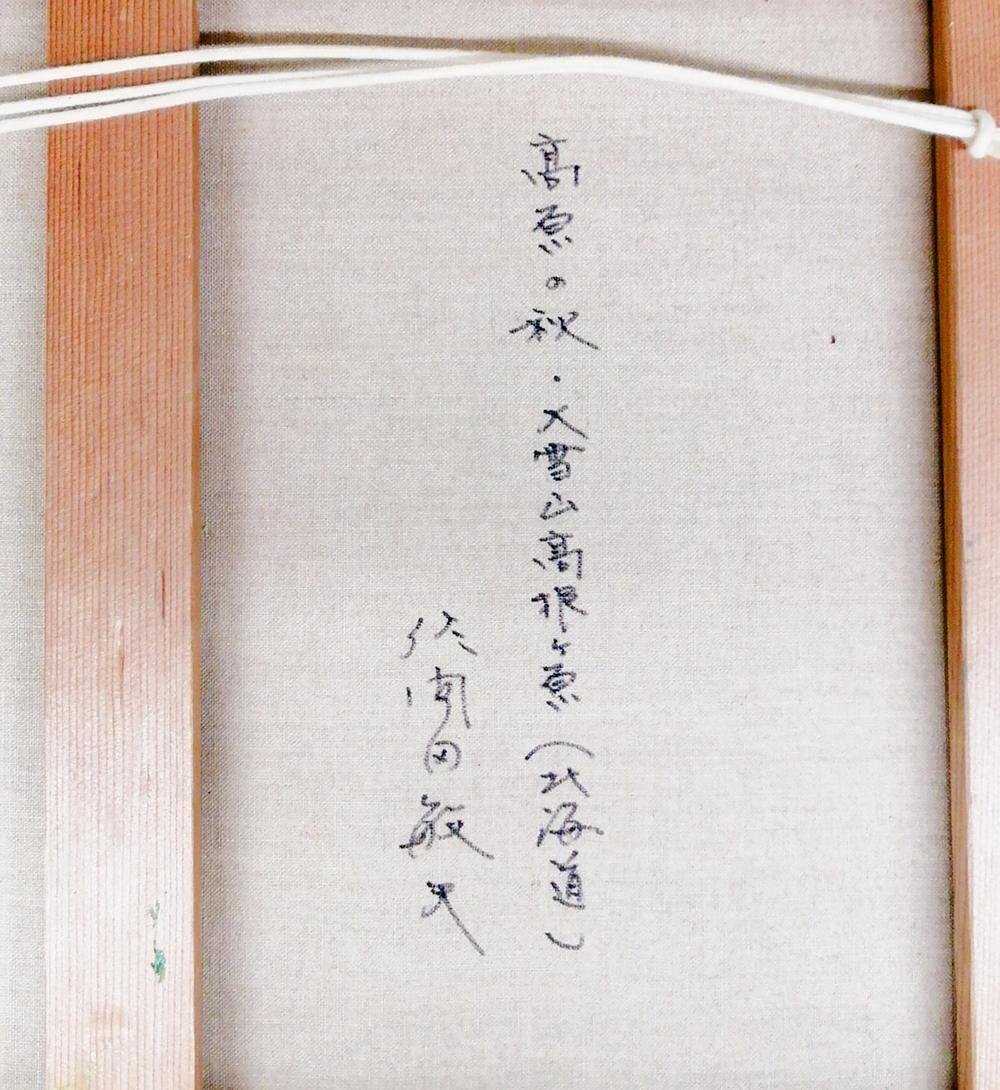 高原の秋・大雪山高根ヶ原（北海道）
佐間田敏夫